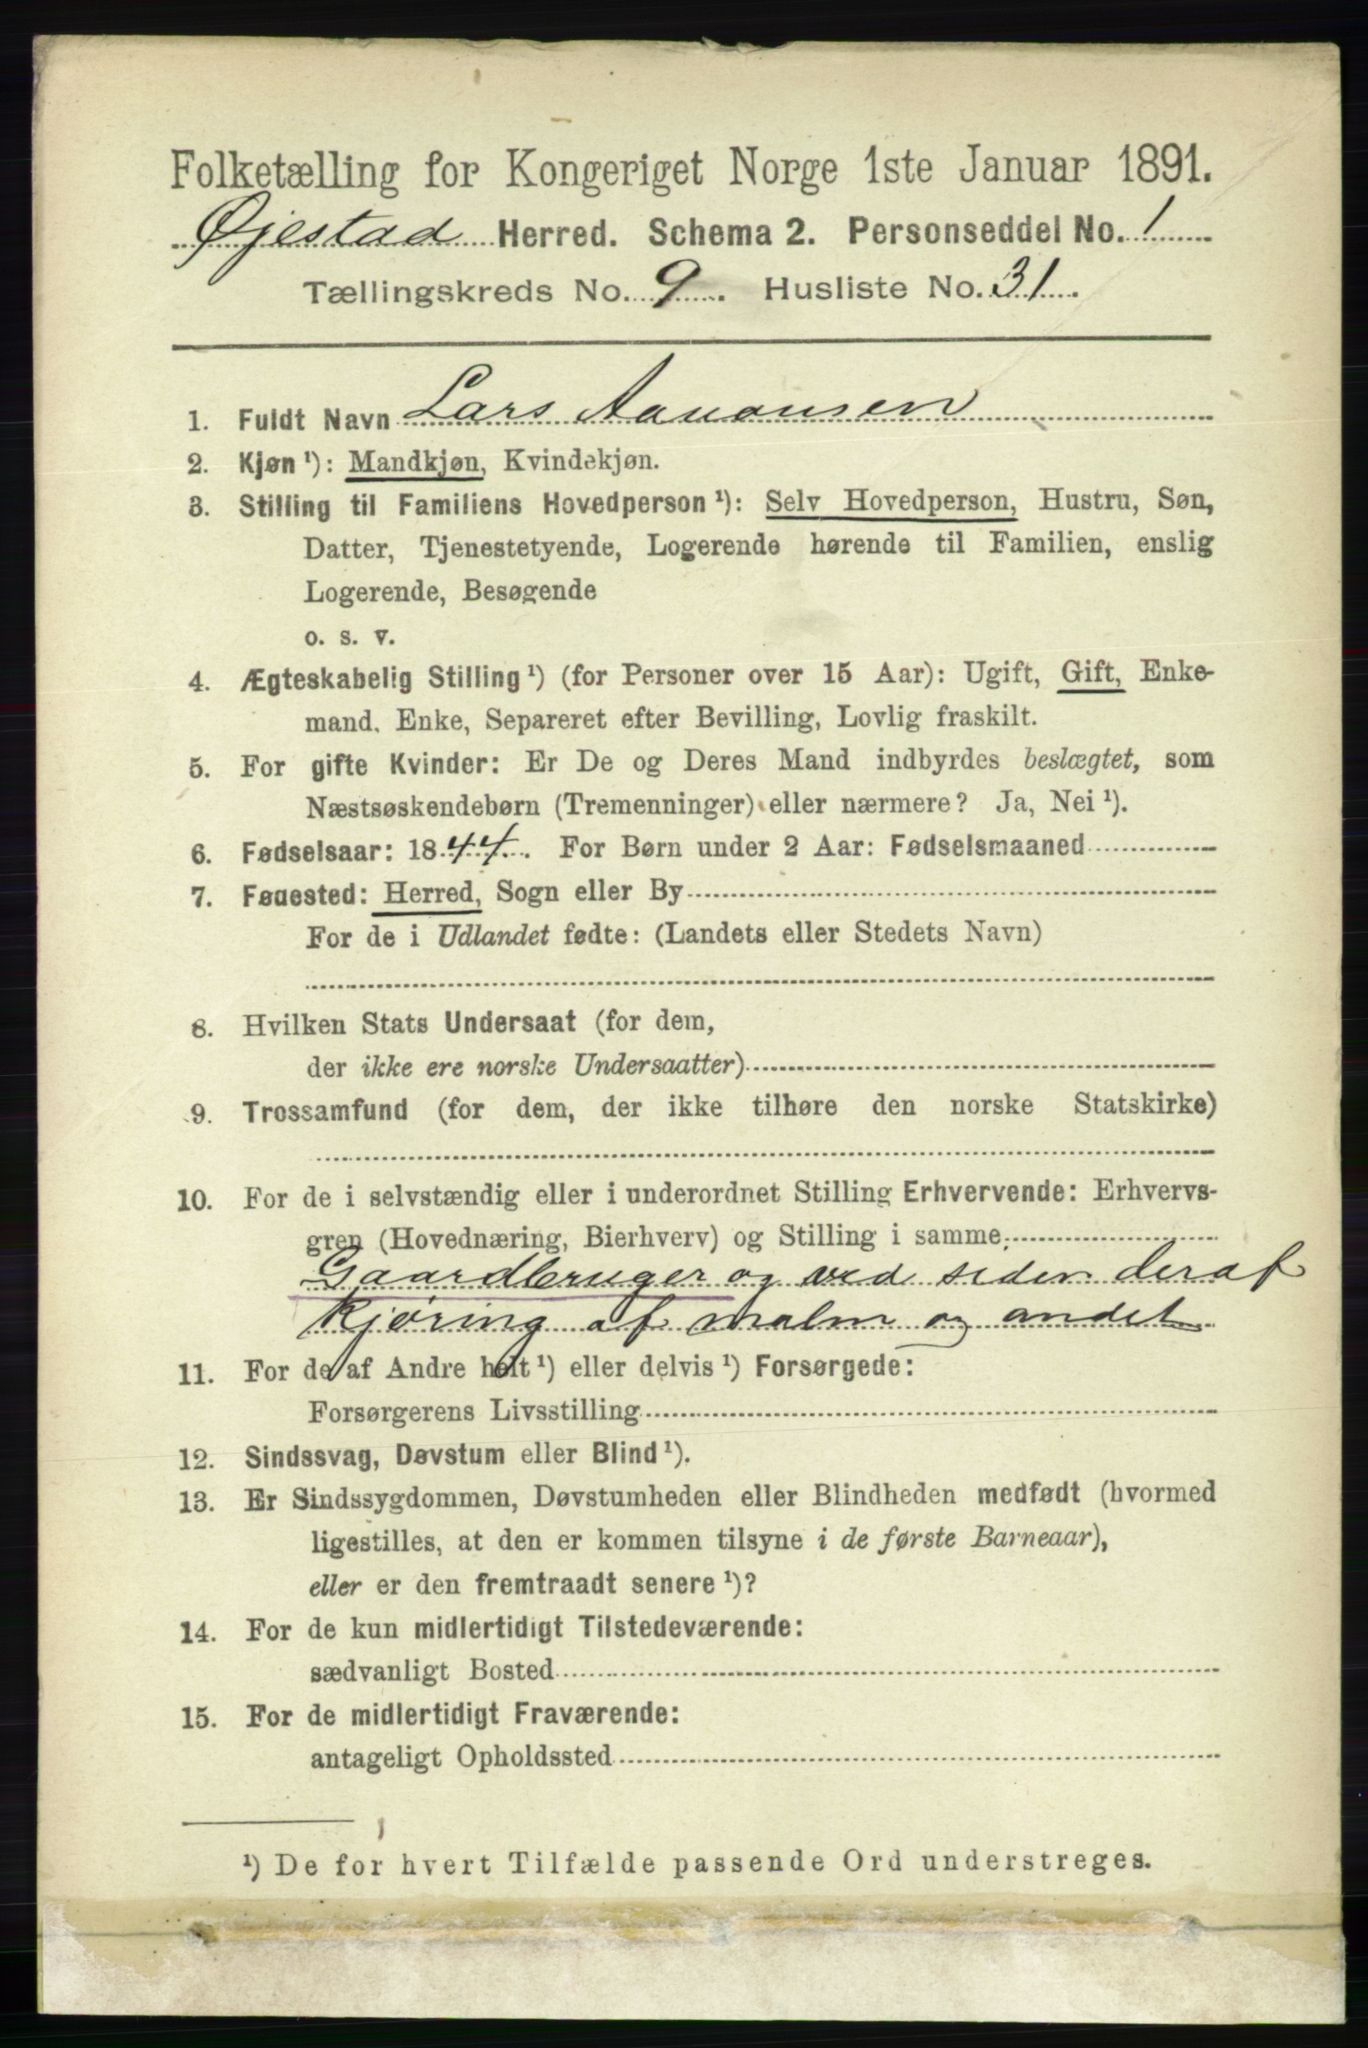 Folketælling for Kongeriget Norge 1ste Januar 1891.
Øjestad Herred. Schema 2. Personseddel No. 1
Tællingskreds No. 9. Husliste No. 31.
1. Fuldt Navn Lars Aanonsen
2. Kjøn ¹): Mandkjøn, Kvindekjøn.
3. Stilling til Familiens Hovedperson ¹): Selv Hovedperson, Hustru, Søn,
Datter, Tjenestetyende, Logerende hørende til Familien, enslig
Logerende, Besøgende
o. s. v.
4. Ægteskabelig Stilling ¹) (for Personer over 15 Aar): Ugift, Gift, Enke-
mand, Enke, Separeret efter Bevilling, Lovlig fraskilt.
5. For gifte Kvinder: Er De og Deres Mand indbyrdes beslægtet, som
Næstsøskendebørn (Tremenninger) eller nærmere? Ja, Nei ¹).
6. Fødselsaar: 1844. For Børn under 2 Aar: Fødselsmaaned
7. Fødested: Herred, Sogn eller By
For de i Udlandet fødte: (Landets eller Stedets Navn)
8. Hvilken Stats Undersaat (for dem,
der ikke ere norske Undersaatter)
9. Trossamfund (for dem, der ikke tilhøre den norske Statskirke)
10. For de i selvstændig eller i underordnet Stilling Erhvervende: Erhvervs-
gren (Hovednæring, Bierhverv) og Stilling i samme.
Gaardbruger og ved siden deraf
kjøring af malm og andet
11. For de af Andre helt ¹) eller delvis ¹) Forsørgede:
Forsørgerens Livsstilling
12. Sindssvag, Døvstum eller Blind ¹).
13. Er Sindssygdommen, Døvstumheden eller Blindheden medfødt (hvormed
ligestilles, at den er kommen tilsyne i de første Barneaar),
eller er den fremtraadt senere ¹)?
14. For de kun midlertidigt Tilstedeværende:
sædvanligt Bosted
15. For de midlertidigt Fraværende:
antageligt Opholdssted
¹) De for hvert Tilfælde passende Ord understreges.